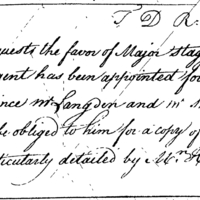 T D R.
quests the favor of Major Stag
gent has been appointed for
nce Mr Langdon and Mr
be obliged to him for a copy of
ticularly detailed by Mr. H